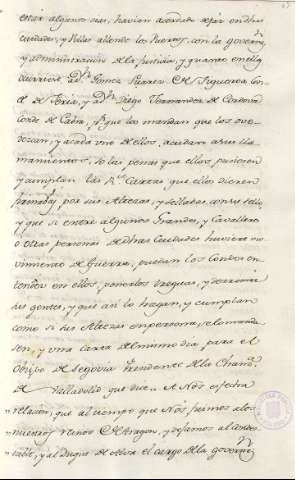 estar algunos dias, havian acordado dejar en dhas
ciudades, y Villas allende los Puertos, con la governⁿ
y administracion de la Justicia, y quanto en ella
ocurriese a Dⁿ Gomez Suarez de Figueroa Con-
de de Feria, y a Dⁿ Diego Fernandez de Cordova
Conde de Cabra, pʳ que los mandan que los ove-
dezcan, y acada uno de ellos, acudan a sus lla-
mamientos, so las penas que ellos pusieren
y cumplan las Rˢ Cartas, que ellos dieren
firmadas por sus Altezas, y selladas con su sello,
y que si entre algunos Grandes, y Cavalleros
o otras personas de dhas Ciudades huviere mo-
vimiento de Guerra, puedan los Condes en-
tender en ellos, ponerles treguas, y derramar
sus gentes, y que asi lo hagan, y cumplan
como si sus Altezas en persona, se lo manda-
sen, y una carta del mismo dia para el
Obispo de Segovia Presidente de la Chanª
de Valladolid que dice = A Nos es fecha
relacion, que al tiempo que Nos fuimos a los
nuestros Reinos de Aragon, y dejamos al Condes-
table, y al Duque de el cargo de la governⁿ